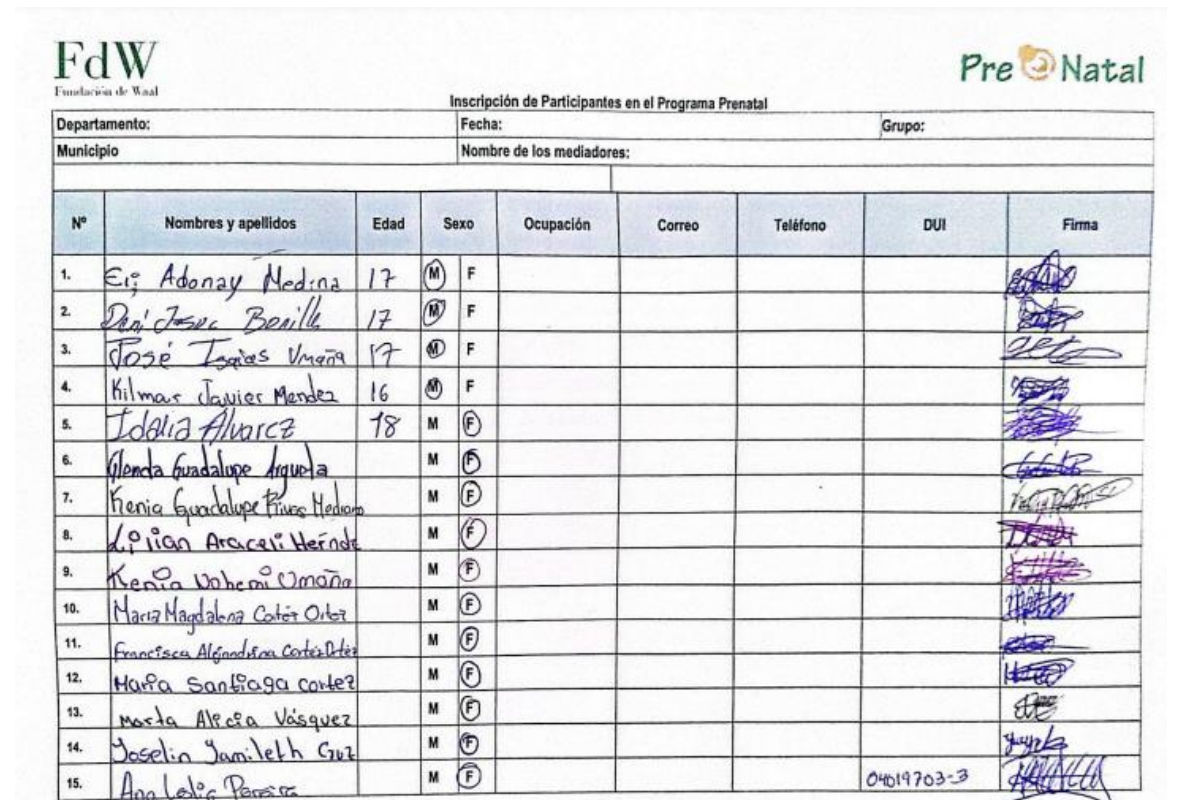 FdW
Fundación de Waal
Pre Natal
Inscripción de Participantes en el Programa Prenatal
Departamento: Fecha: Grupo:
Municipio Nombre de los mediadores:
Nº Nombres y apellidos Edad Sexo Ocupación Correo Teléfono DUI Firma
1. Eli Adonay Medina 17 M F
2. Deni Josue Bonilla 17 M F
3. José Isaias Umaña 17 M F
4. Kilmar Javier Mendez 16 M F
5. Idalia Alvarez 18 M F
6. Glenda Guadalupe Argueta M F
7. Kenia Guadalupe Rivas Medrano M F
8. Lilian Araceli Hernde M F
9. Kenia Nohemi Umaña M F
10. Maria Magdalena Cortéz Ortez M F
11. Francisca Alejandrina Cortez Ortéz M F
12. Maria Santiaga cortez M F
13. Marta Alicia Vásquez M F
14. Yoselin Yamileth Cruz M F
15. Ana Leslie Pereira M F 04019703-3